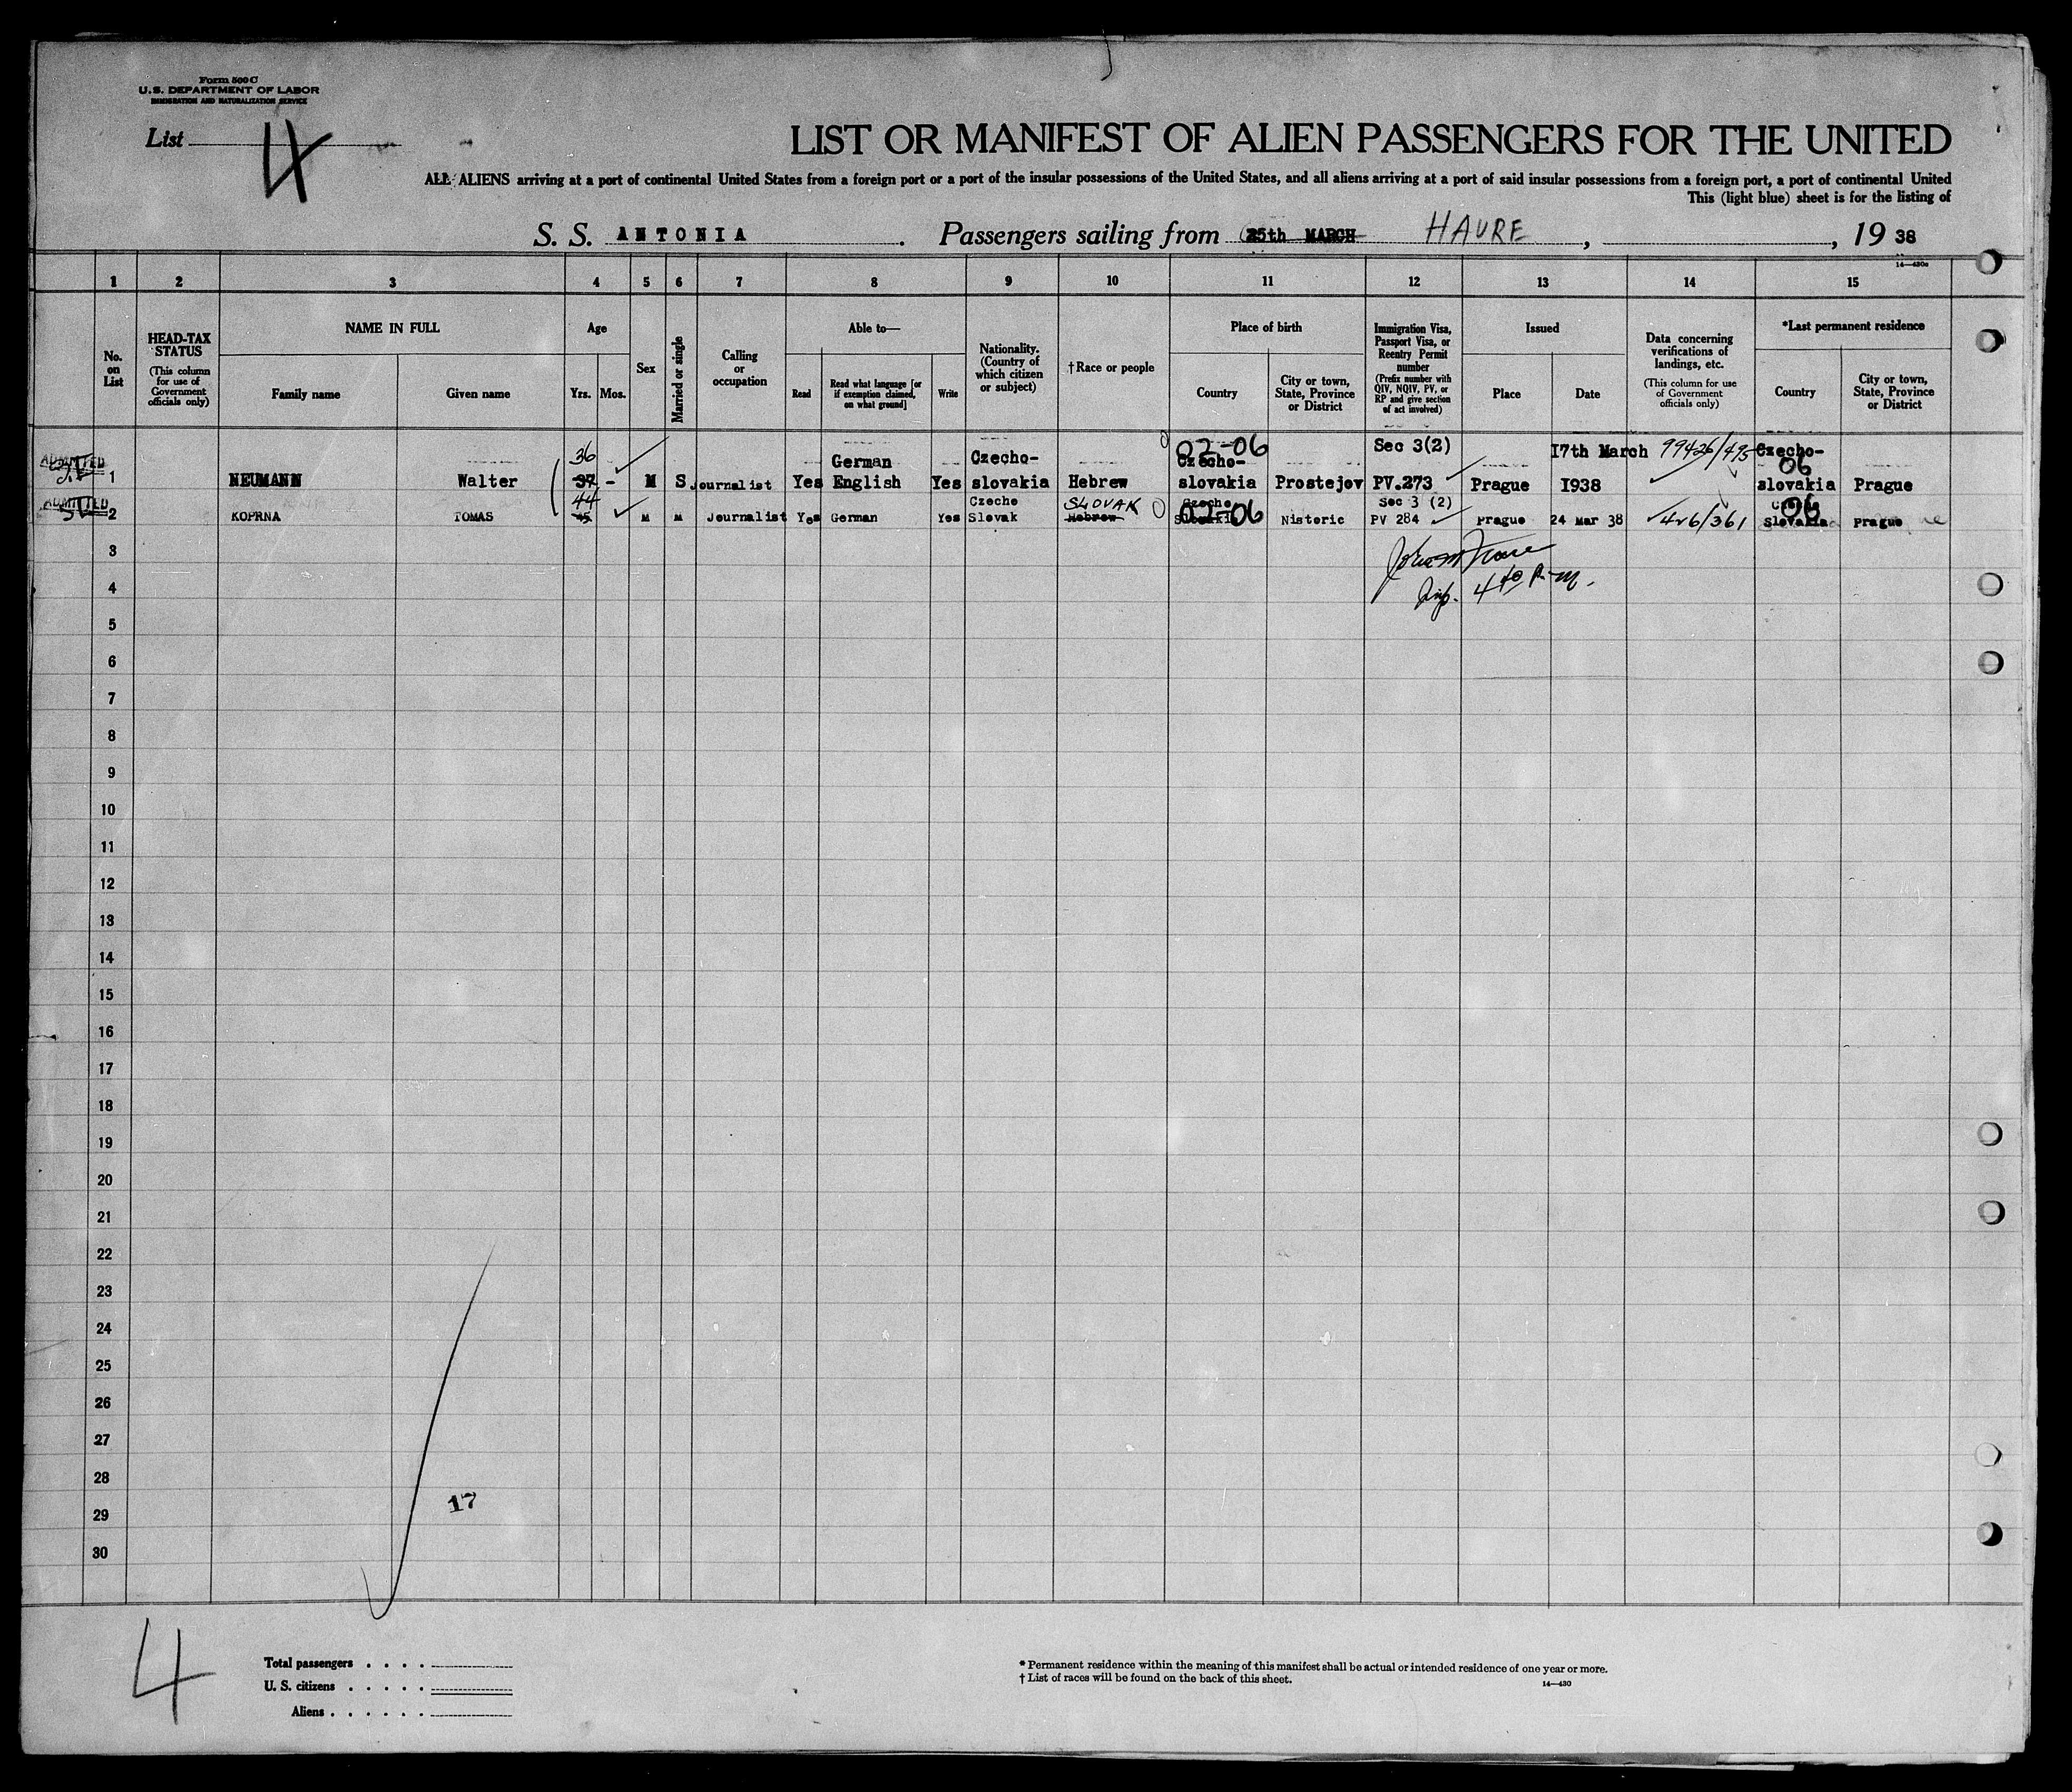 Form 500 C
U. S. DEPARTMENT OF LABOR
IMMIGRATION AND NATURALIZATION SERVICE
List 4
LIST OR MANIFEST OF ALIEN PASSENGERS FOR THE UNITED
ALL ALIENS arriving at a port of continental United States from a foreign port or a port of the insular possessions of the United States, and all aliens arriving at a port of said insular possessions from a foreign port, a port of continental United
This (light blue) sheet is for the listing of
S. S. ANTONIA. Passengers sailing from 25th MARCH HAVRE, , 19 38
14—430a
1 2 3 4 5 6 7 8 9 10 11 12 13 14 15
No. on List
HEAD-TAX STATUS (This column for use of Government officials only)
NAME IN FULL
Family name Given name
Age
Yrs. Mos.
Sex
Married or single
Calling or occupation
Able to—
Read Read what language [or if exemption claimed, on what ground] Write
Nationality. (Country of which citizen or subject)
†Race or people
Place of birth
Country City or town, State, Province or District
Immigration Visa, Passport Visa, or Reentry Permit number (Prefix number with QIV, NQIV, PV, or RP and give section of act involved)
Issued
Place Date
Data concerning verifications of landings, etc. (This column for use of Government officials only)
*Last permanent residence
Country City or town, State, Province or District
36 German Czecho- 02-06 Czecho- Sec 3(2) 17th March 99426/495 Czecho- 06
ADMITTED 1 NEUMANN Walter 37 - M S Journalist Yes English Yes slovakia Hebrew slovakia Prostejov PV.273 Prague 1938 slovakia Prague
44 Czecho SLOVAK Czecho Sec 3 (2) 06
ADMITTED 2 KOPRNA TOMAS 45 M M Journalist Yes German Yes Slovak Hebrew 02-06 Nistoric PV 284 Prague 24 Mar 38 426/361 Slovakia Prague
3
4 4 40 P.M.
5
6
7
8
9
10
11
12
13
14
15
16
17
18
19
20
21
22
23
24
25
26
27
28
29
30
17
4
Total passengers . . . .
U. S. citizens . . . . .
Aliens . . . . . .
* Permanent residence within the meaning of this manifest shall be actual or intended residence of one year or more.
† List of races will be found on the back of this sheet.
14—430